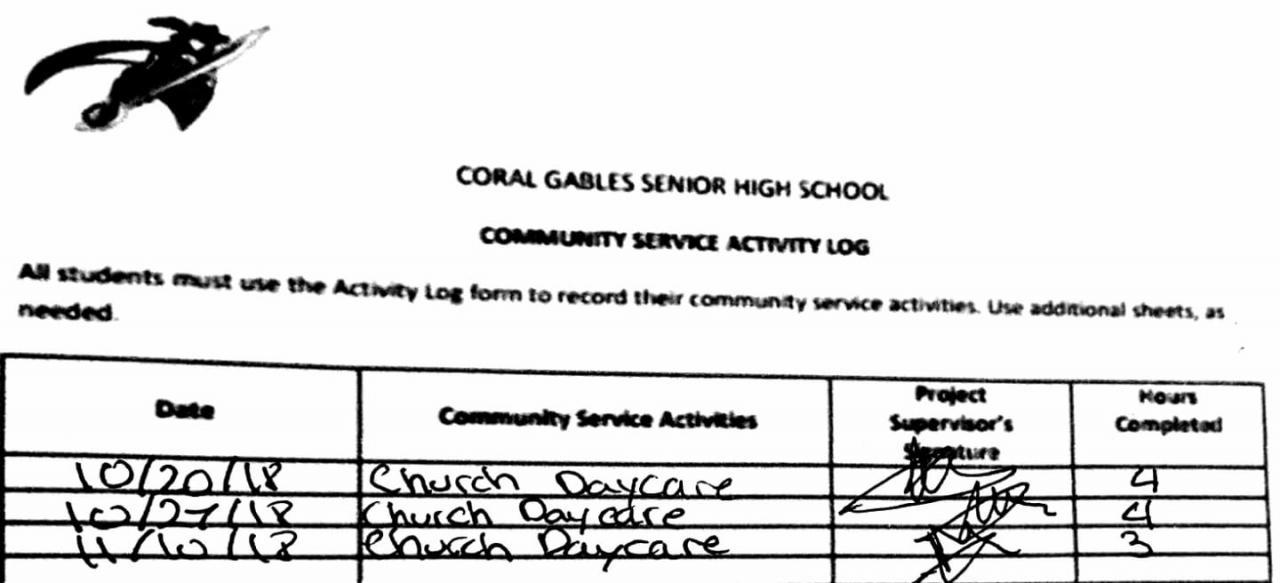 CORAL GABLES SENIOR HIGH SCHOOL
COMMUNITY SERVICE ACTIVITY LOG
All students must use the Activity Log form to record their community service activities. Use additional sheets, as
needed.
Date Community Service Activities Project Supervisor's Signature Hours Completed
10/20/18 Church Daycare 4
10/27/18 Church Daycare 4
11/10/18 Church Daycare 3